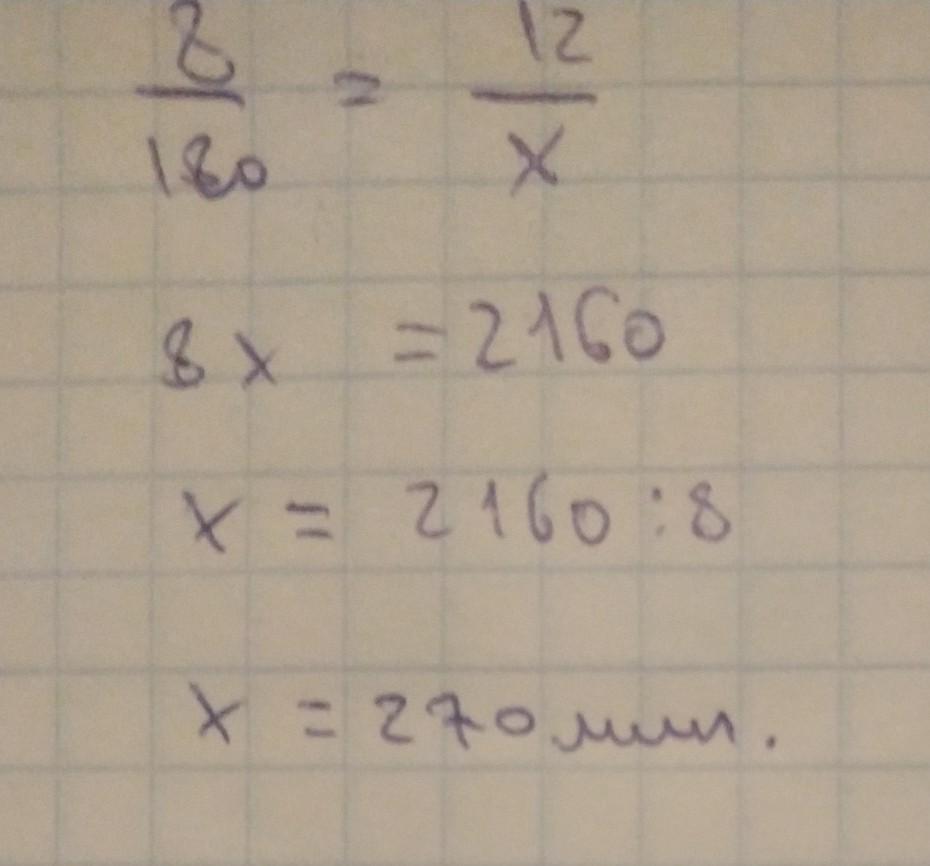 8/180 = 12/x
8x = 2160
x = 2160 : 8
x = 270 мин.